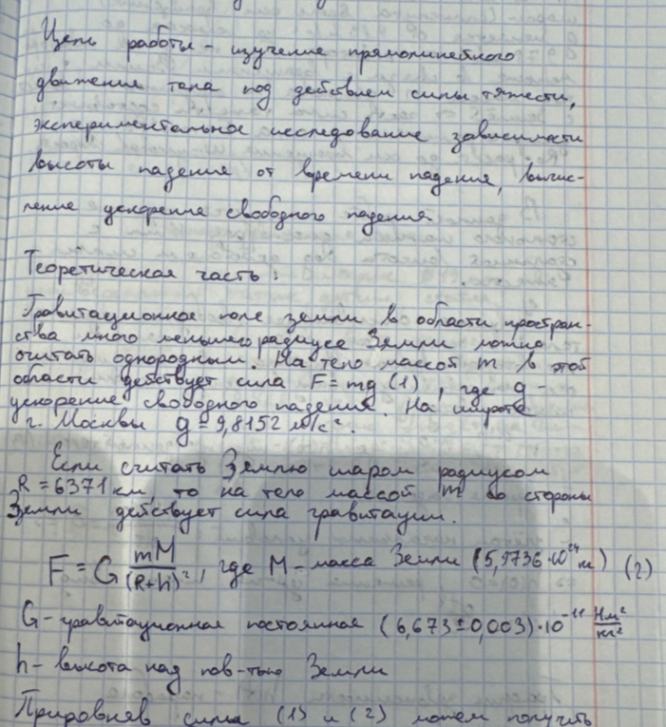 Цель работы - изучение прямолинейного
движения тела под действием силы тяжести,
экспериментальное исследование зависимости
высоты падения от времени падения, вычис-
ление ускорения свободного падения.
Теоретическая часть:
Гравитационное поле земли в области простран-
ства много меньшего радиуса Земли можно
считать однородным. На тело массой m в этой
области действует сила F = mg (1), где g -
ускорение свободного падения. На широте
г. Москвы g = 9,8152 м/с².
Если считать Землю шаром радиусом
R = 6371 км, то на тело массой m со стороны
Земли действует сила гравитации.
F = G mM/(R+h)², где M - масса Земли (5,9736·10²⁴ кг) (2)
G - гравитационная постоянная (6,673±0,003)·10⁻¹¹ Нм²/кг²
h - высота над пов-тью Земли
Приравняв силы (1) и (2) можем получить